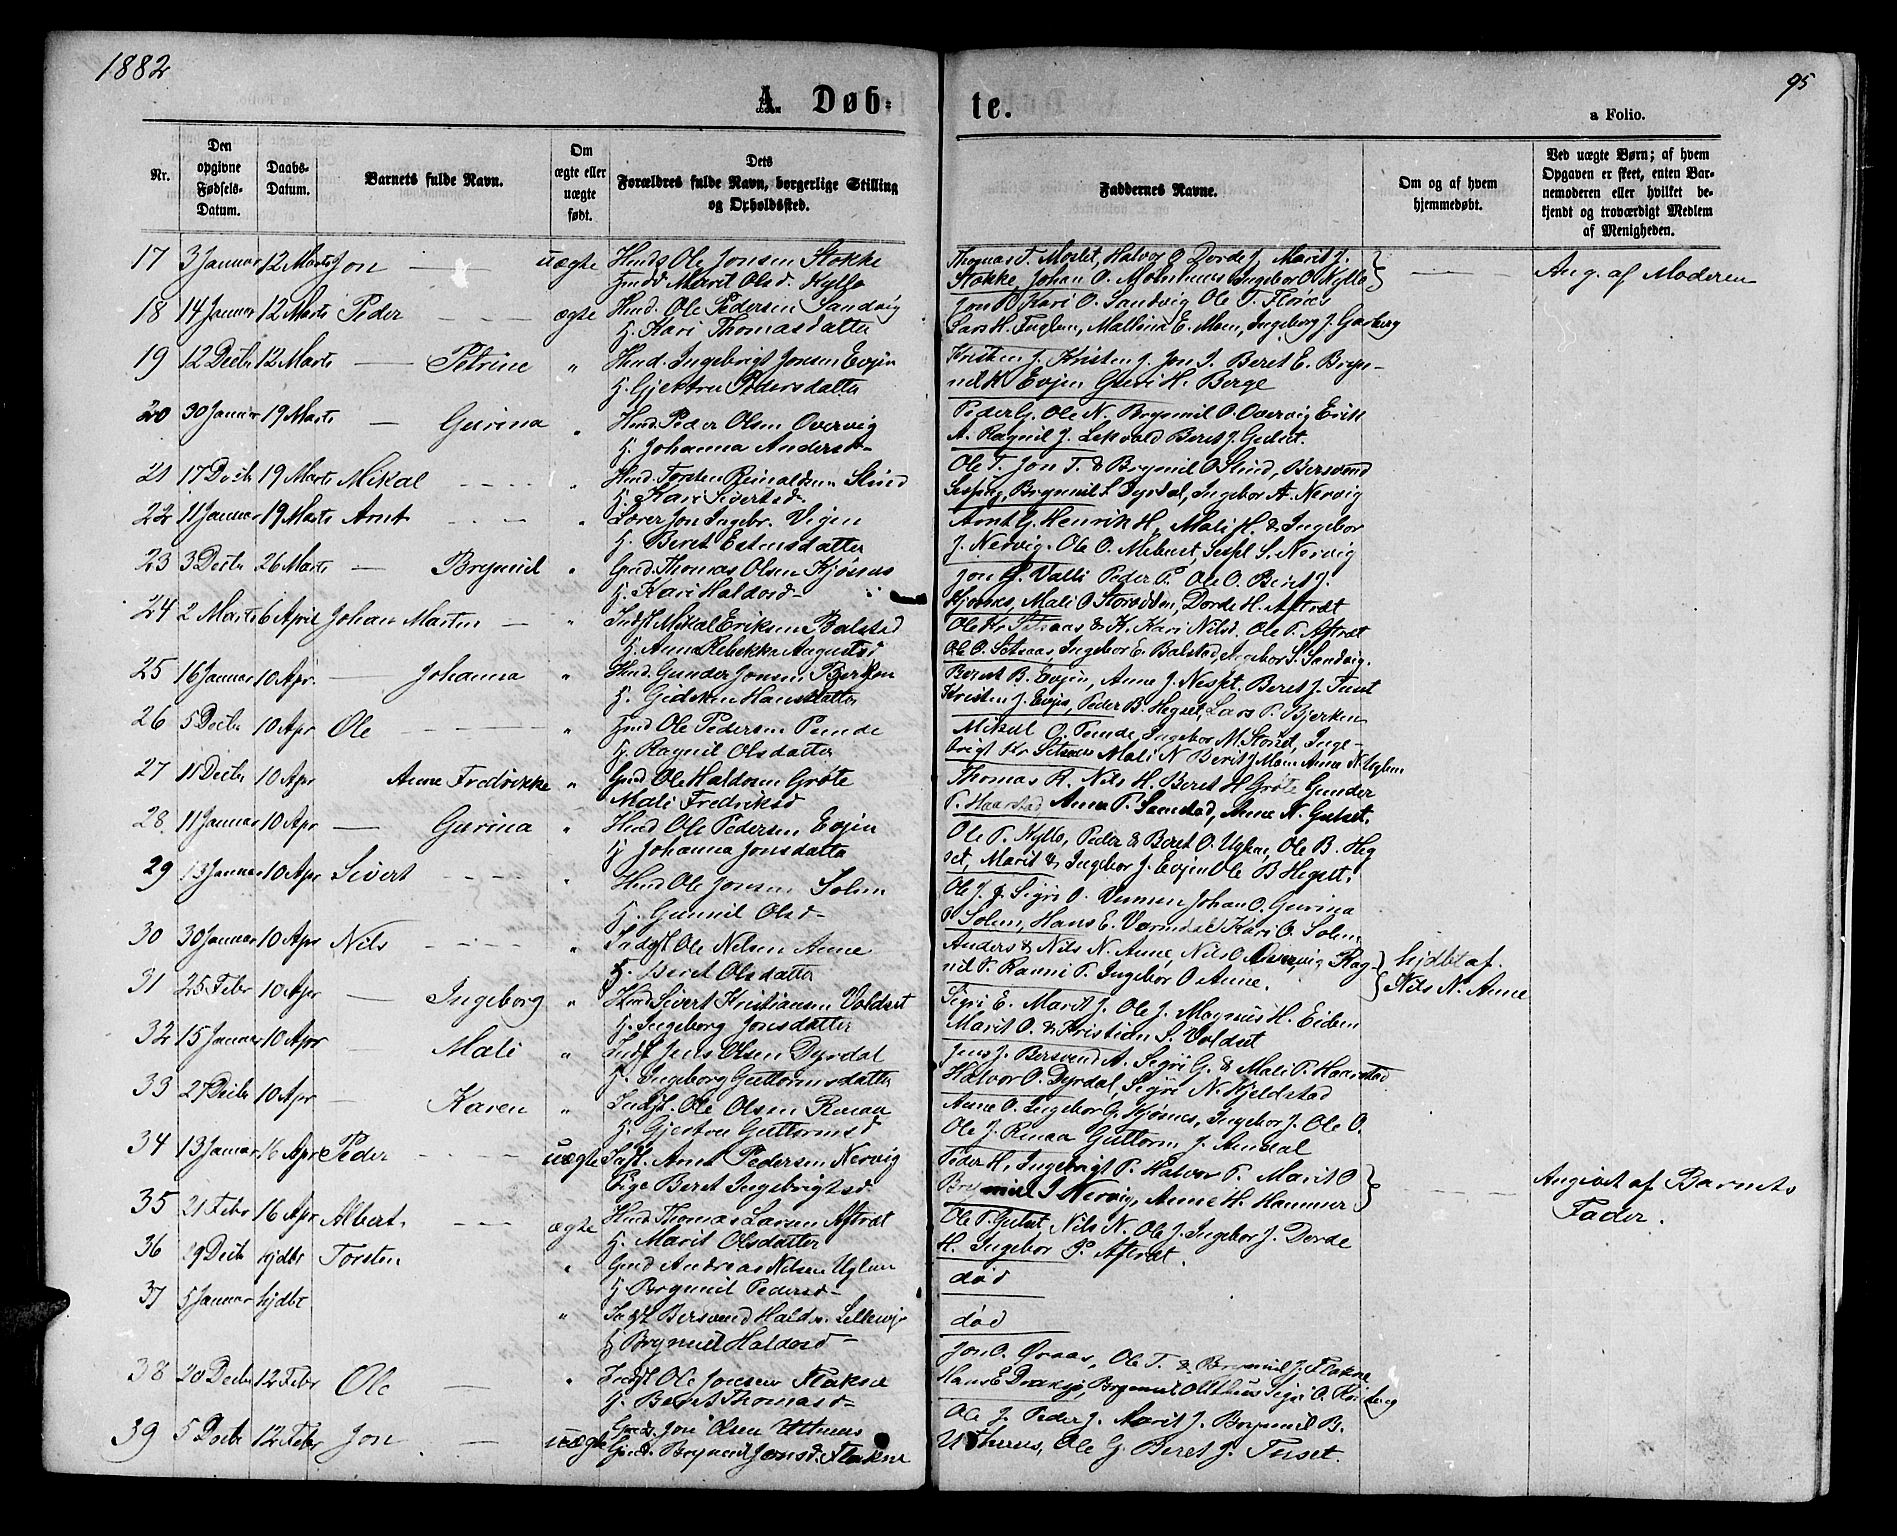 1882
95
A. Døb-
te.
a Folio.
Nr.
Den opgivne Fødsels-Datum.
Daabs-Datum.
Barnets fulde Navn.
Om ægte eller uægte født.
Dets Forældres fulde Navn, borgerlige Stilling og Opholdssted.
Faddernes Navne.
Om og af hvem hjemmedøbt.
Ved uægte Børn; af hvem Opgaven er skeet, enten Barnemoderen eller hvilket bekjendt og troværdigt Medlem af Menigheden.
17 3 Januar 12 Marts Jon — uægte Hmds Ole Jonsen Stokke
Gmdd Marit Olsd. Kyllo
Thomas T. Moslet, Halvor O Dorde J. Marit J.
Stokke, Johan O. Ingebor O. Kyllo
Ang. af Moderen
18 14 Januar 12 Marts Peder ægte Hmd. Ole Pedersen Sandvig
H. Kari Thomasdatter
Jon P. Kari O. Sandvig Ole T. Flönes
Lars H. Fuglem, Mallena E. Moen, Ingeborg J. Garberg
19 12 Decbr 12 Marts — Petrine " Hmd. Ingebrigt Jonsen Evjen
H. Gjertru Pedersdatter
Kristen J. Kristen J. Jon J. Beret E. Bryn-
nild K Evjen Guri H. Berge
20 30 Januar 19 Marts — Gurina " Hmd. Peder Olsen Overvig
H. Johanna Andersd-
Peder G. Ole N. Brynnil O. Overvig Erik
A. Ragnil J. Lekvold Beret J. Gulset.
21 17 Decbr 19 Marts Mikal " Hmd. Torsten Reinoldsen Slind
H. Kari Sivertsd-
Ole T. Jon T. & Brynnil O Slind, Bersvend
Brynnil L Dyrdal, Ingebor A. Nervig
22 11 Januar 19 Marts Arnt " Lærer Jon Ingebr. Vigen
H. Beret Estensdatter
Arnt G. Henrik H, Mali H. & Ingebor
J. Nervig. Ole O. Sespl S. Nervig
23 3 Decbr 26 Marts — Brynnil " Gmd. Thomas Olsen Kjösnes
H. Kari Haldosd-
Jon H. Valli Peder P. Ole O. Berit J.
Kjösnes, Mali O Storødden, Dorde H. Aftret
24 2 Marts 6 April Johan Martin — " Indst Mikal Eriksen Balstad
H. Anna Rebekka Augustsd
Ole Kr Setsaas & K. Kari Nilsd. Ole P. Aftret
Ole O. Setsaas, Ingebor E. Balstad, Ingebor S. Sandvig.
25 16 Januar 10 Apr. — Johanna " Hmd. Gunder Jonsen Bjerken
H. Gedsken Hansdatter
Bernt B. Evjen, Anne J. Nespt. Beret J. Tuset
Kristen J. Evjen, Peder B. Hegset, Lars P. Bjerken
26 5 Decbr 10 Apr Ole " Gmd Ole Pedersen Pende
H. Ragnil Olsdatter
Mikal O. Pende, Ingebor M. Inge-
brigt Kr Setsaas Mali N Berit J Moen Anne N. Uglem
27 11 Decbr 10 Apr Anne Fredrikke " Gmd. Ole Haldosen Gröte
Mali Fredriksd
Thomas R. Nils H. Beret H Gröte Gunder
P. Haarstad Anne P. Samstad, Anne N. Gulset.
28 11 Januar 10 Apr — Gurina " Hmd Ole Pedersen Evjen
H Johanna Jonsdatter
Ole P. Kyllo, Peder & Beret O. Uglem, Ole B. Heg
set, Marit & Ingebor J. Evjen Ole B Hegset.
29 13 Januar 10 Apr Sivert " Hmd Ole Jonsen Solem
H. Gunnil Olsd-
Ole J. J. Sigri O. Johan O. Gurina
O Solem, Hans E. Værmdal Kari O. Solem
30 30 Januar 10 Apr Nils " Indst Ole Nilsen Aune
H. Beret Olsdatter
Anders & Nils N. Aune, Nils O Overvig Rag-
nil P. Ranni P. Ingebor O Aune.
hjdbt af
Nils N. Aune
31 25 Febr 10 Apr — Ingeborg " Hmd Sivert Kristiansen Voldset
H. Ingeborg Jonsdatter
Sigri E. Marit J. Ole J. Magnus H. Eiden
Marit O. & Kristian S. Voldset
32 15 Januar 10 Apr — Mali " Indst Jens Olsen Dyrdal
H. Ingeborg Guttormsdatter
Jens J. Bersvend A. Sigri G. & Mali P. Haarstad
Halvor O. Dyrdal, Sigri N. Kjelstad
33 27 Decbr 10 Apr — Karen " Indst. Ole Olsen Renaa
H. Gjertru Guttormsd
Anne O. Ingebor G. Kjösnes, Ingebor J. Ole O.
Ole J. Renaa Guttorm J. Amdal
34 13 Januar 16 Apr Peder uægte Indst. Arnt Pedersen Nervig
Pige Beret Ingebrigtsd
Peder H. Ingebrigt P. Halvor P. Marit O
Brynnil J Nervig, Anne H. Hammer
Angivet af Barnets
Fader.
35 21 Febr 16 Apr Albert ægte Hmd. Thomas Larsen Aftret
H. Marit Olsdatter
Ole P. Gulset, Nils N. Ole J. Ingebor J. Dorde
H. Ingebor P. Aftret.
36 29 Decbr hjdbt Torsten " Gmd Andreas Nilsen Uglem
H Brynnil Pedersd-
död
37 5 Januar hjdbt " Indst Bersvend Haldo.
H Brynnil Haldosd-
död
38 20 Decbr 12 Febr Ole — " Indst Ole Jonsen Flaksne
H. Beret Thomasd-
Jon O. Ole T. & Brynnil J. Flaksne
Hans E Draksjø, Brynnil O Sigri O. Rönsberg
39 5 Decbr 12 Febr Jon — uægte Gmds. Jon Olsen Uthuus
Gmd. Brynnil Jonsd. Flaksne
Ole J. Peder J. Marit J. Brynnil B.
Uthuus, Ole G. Beret J. Tuset.